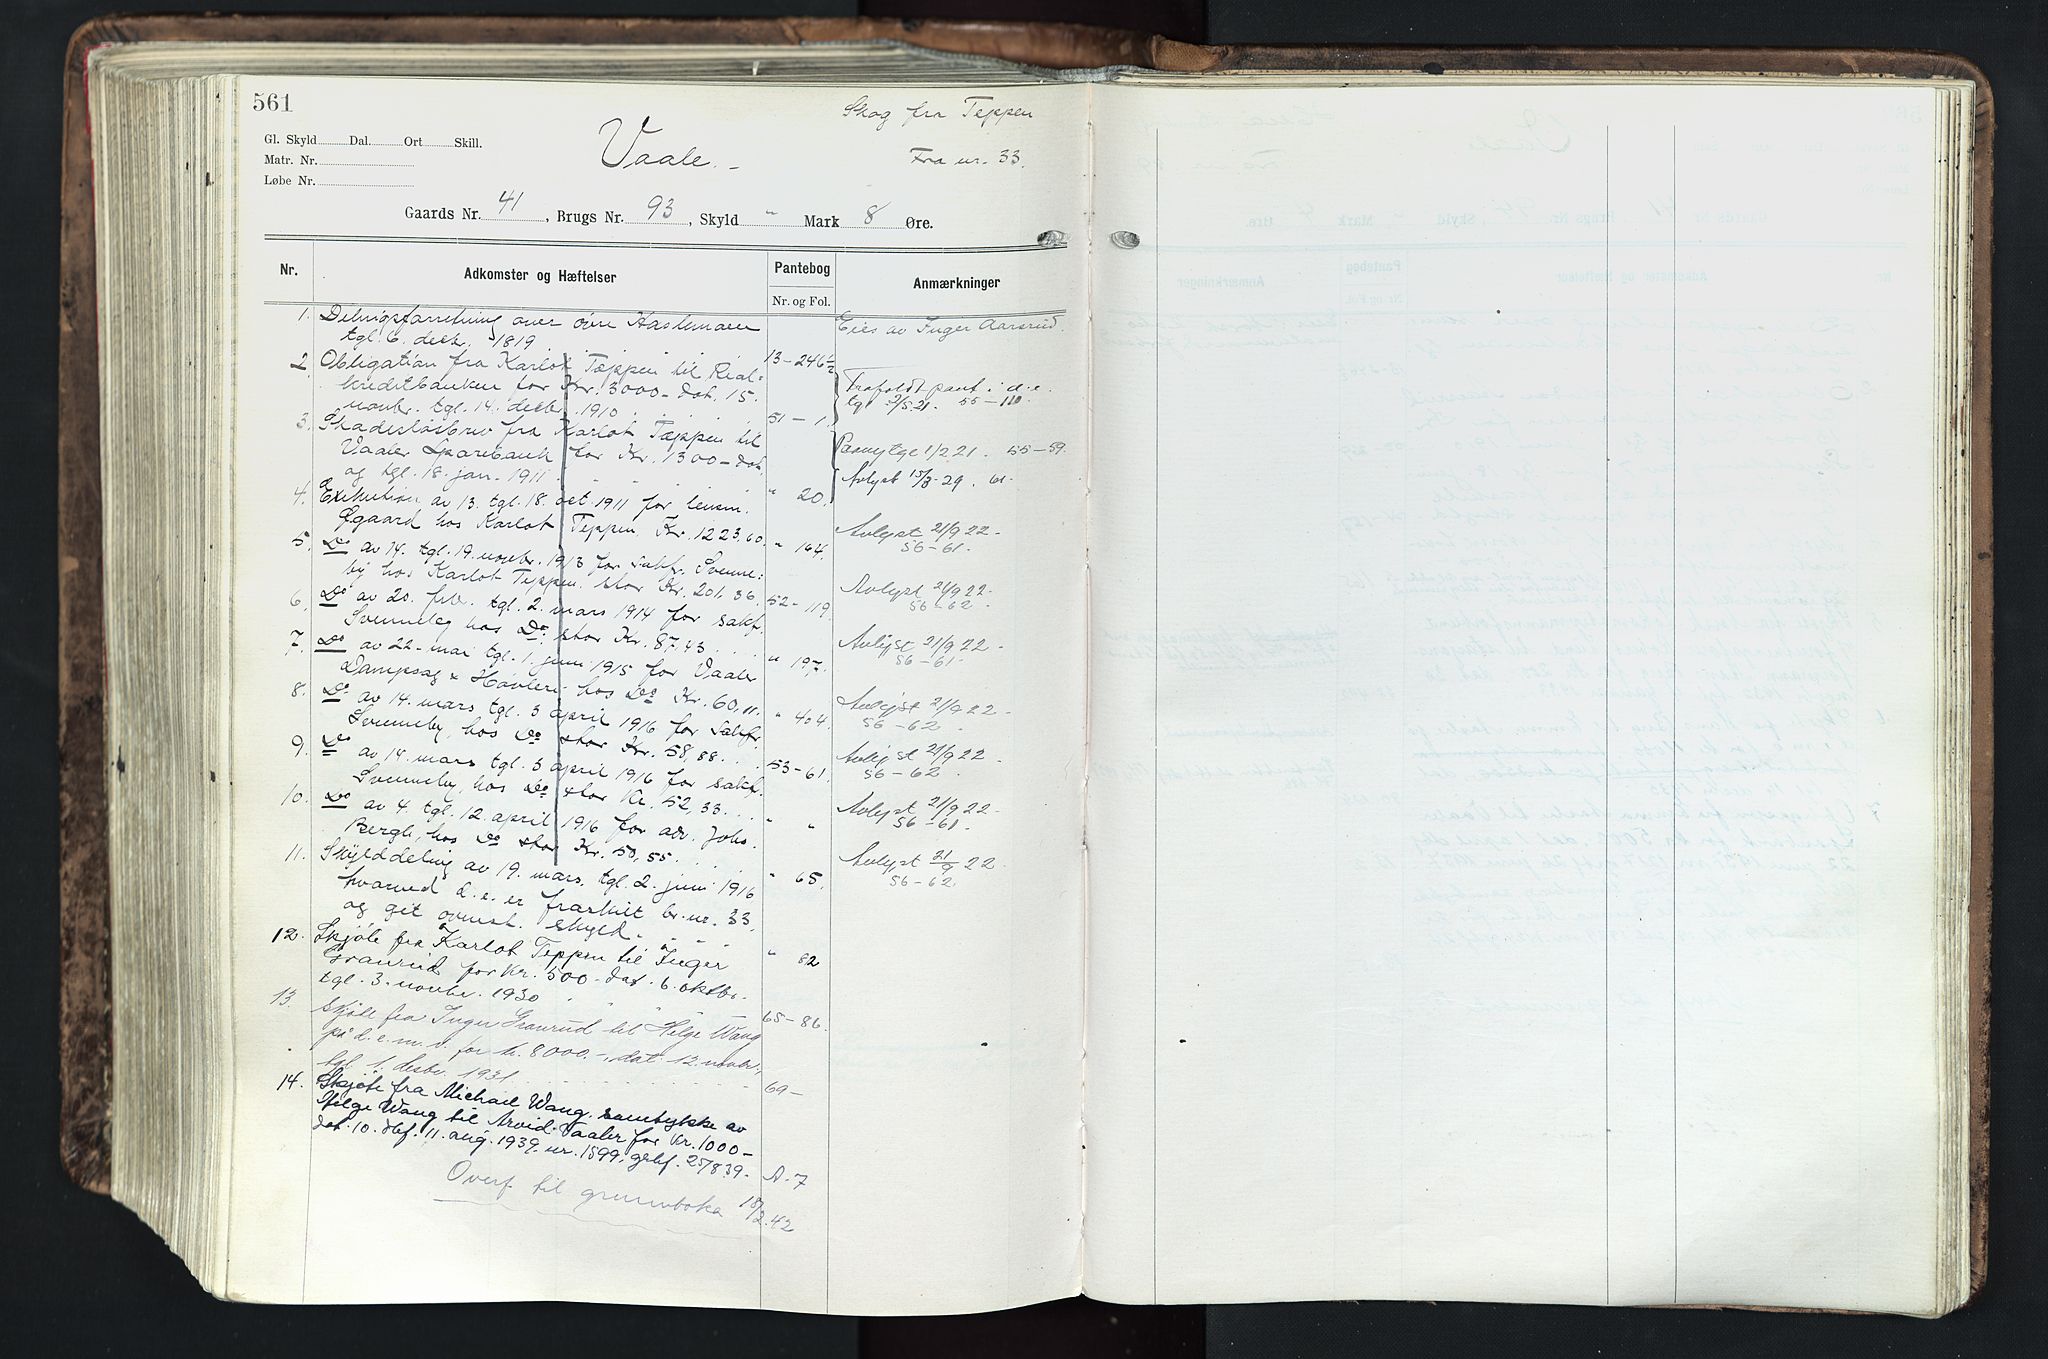 561
Skog fra Teppen
Gl. Skyld Dal. Ort Skill.
Vaale. -
Matr. Nr.
Fra nr. 33.
Løbe Nr.
Gaards Nr. 41, Brugs Nr. 93, Skyld " Mark 8 Øre.
Nr. Adkomster og Hæftelser Pantebog Anmærkninger
Nr. og Fol.
1. Delingsforretning over øvre Haslemoen Eies av Inger Aarsrud.
tgl. 6. decbr. 1819. 13-246½
2. Obligation fra Karlot Teppen til Real=
kreditbanken for Kr. 3000- dat. 15. Frafaldt pant i d.e.
novbr. tgl. 14. decbr. 1910. 51-1. tgl 2/5 21. 55-110.
3. Skadesløsbrev fra Karlot Teppen til
Vaaler Sparebank for Kr. 1300- dat. 1/2 21. 55-59.
og tgl. 18. jan. 1911. " 20. Avlyst 15/3-29. 61-
4. Exekution av 13. tgl. 18. oct. 1911 for lensm.
Øgaard hos Karlot Teppen Kr. 1223,60. " 164. Avlyst 21/9 22-
56-61.
5. Do av 14. tgl. 19. novbr. 1913 for sakf. Svenne=
by hos Karlot Teppen stor Kr. 201,36. 52-119 Avlyst 21/9 22-
56-62.
6. Do av 20. febr. tgl. 2. mars 1914 for sakf.
Svenneby hos Do stor Kr. 87,43. . . . " 197. Avlyst 21/9 22-
56-61.
7. Do av 22. mai tgl. 1. juni 1915 for Vaaler
Dampsag & Høvleri hos Do Kr. 60,11. " 404. Avlyst 21/9 22-
56-62.
8. Do av 14. mars tgl. 3 april 1916 for sakf.
Svenneby, hos Do stor Kr. 58,88. . . 53-61. Avlyst 21/9 22-
56-62.
9. Do av 14. mars tgl. 3 april 1916 for sakf.
Svenneby, hos Do stor Kr. 52,33. . . " " Avlyst 21/9 22-
56-61.
10. Do av 4. tgl. 12. april 1916 for adv. Johs.
Bergh, hos Do stor Kr. 50,55. . . " 65. Avlyst 21/9 22-
56-62.
11. Skylddeling av 19. mars, tgl. 2. juni 1916
hvorved d.e. er fraskilt br. nr. 33,
og git ovenst. skyld. " " " " 82
12. Skjøte fra Karlot Teppen til Inger
Granrud for Kr. 500- dat. 6. oktbr.
tgl. 3. novbr. 1930 65-86.
13. Skjøte fra Inger Granrud til Helge Wang
på d.e. m.v. for kr. 8000.-, dat. 12. novbr.,
tgl. 1. desbr. 1931. . . . . 69-
14. Skjøte fra Michael Wang, samtykke av
Helge Wang til Arvid Vaaler for Kr. 1000-
dat. 10. dbf. 11. aug. 1939, nr. 1599, grbf. 25/8 39- A.7
Overf til grunnboka 18/2.42